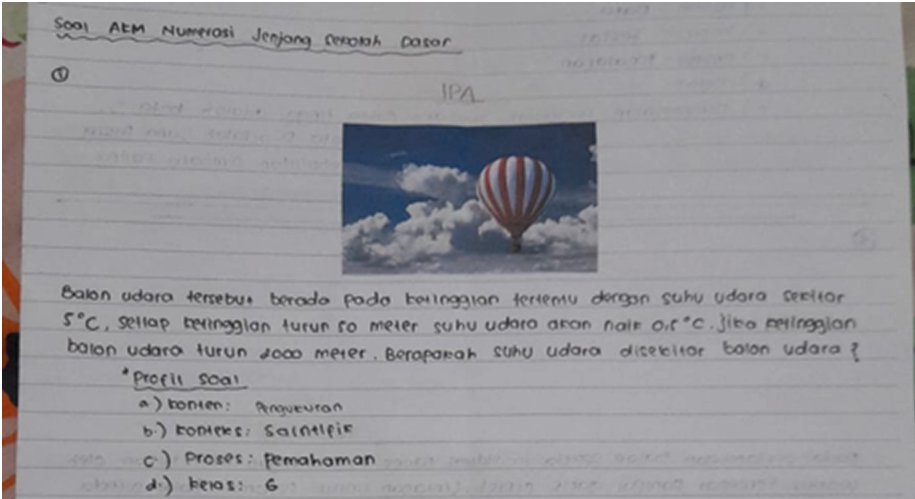 Soal AKM Numerasi Jenjang Sekolah Dasar
①
IPA
Balon udara tersebut berada pada ketinggian tertentu dengan suhu udara sekitar
5°C, setiap ketinggian turun 50 meter suhu udara akan naik 0,5°C. Jika ketinggian
balon udara turun 2000 meter. Berapakah suhu udara disekitar balon udara ?
* Profil soal
a.) konten : Pengukuran
b.) konteks : Saintifik
c.) Proses : Pemahaman
d.) kelas : 6